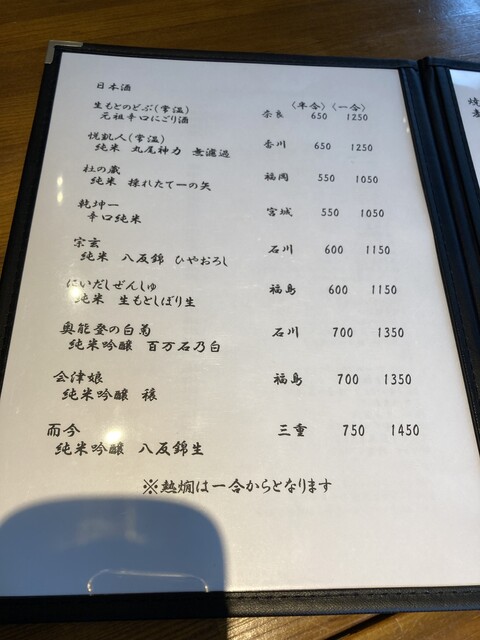 日本酒
〈半合〉〈一合〉
生もとのどぶ(常温) 奈良 650 1250
元祖辛口にごり酒
悦凱人(常温) 香川 650 1250
純米 丸尾神力 無濾過
杜の蔵 福岡 550 1050
純米 採れたて一の矢
乾坤一 宮城 550 1050
辛口純米
宗玄 石川 600 1150
純米 八反錦 ひやおろし
にいだしぜんしゅ 福島 600 1150
純米 生もとしぼり生
奥能登の白菊 石川 700 1350
純米吟醸 百万石乃白
会津娘 福島 700 1350
純米吟醸 穣
而今 三重 750 1450
純米吟醸 八反錦生
※熱燗は一合からとなります